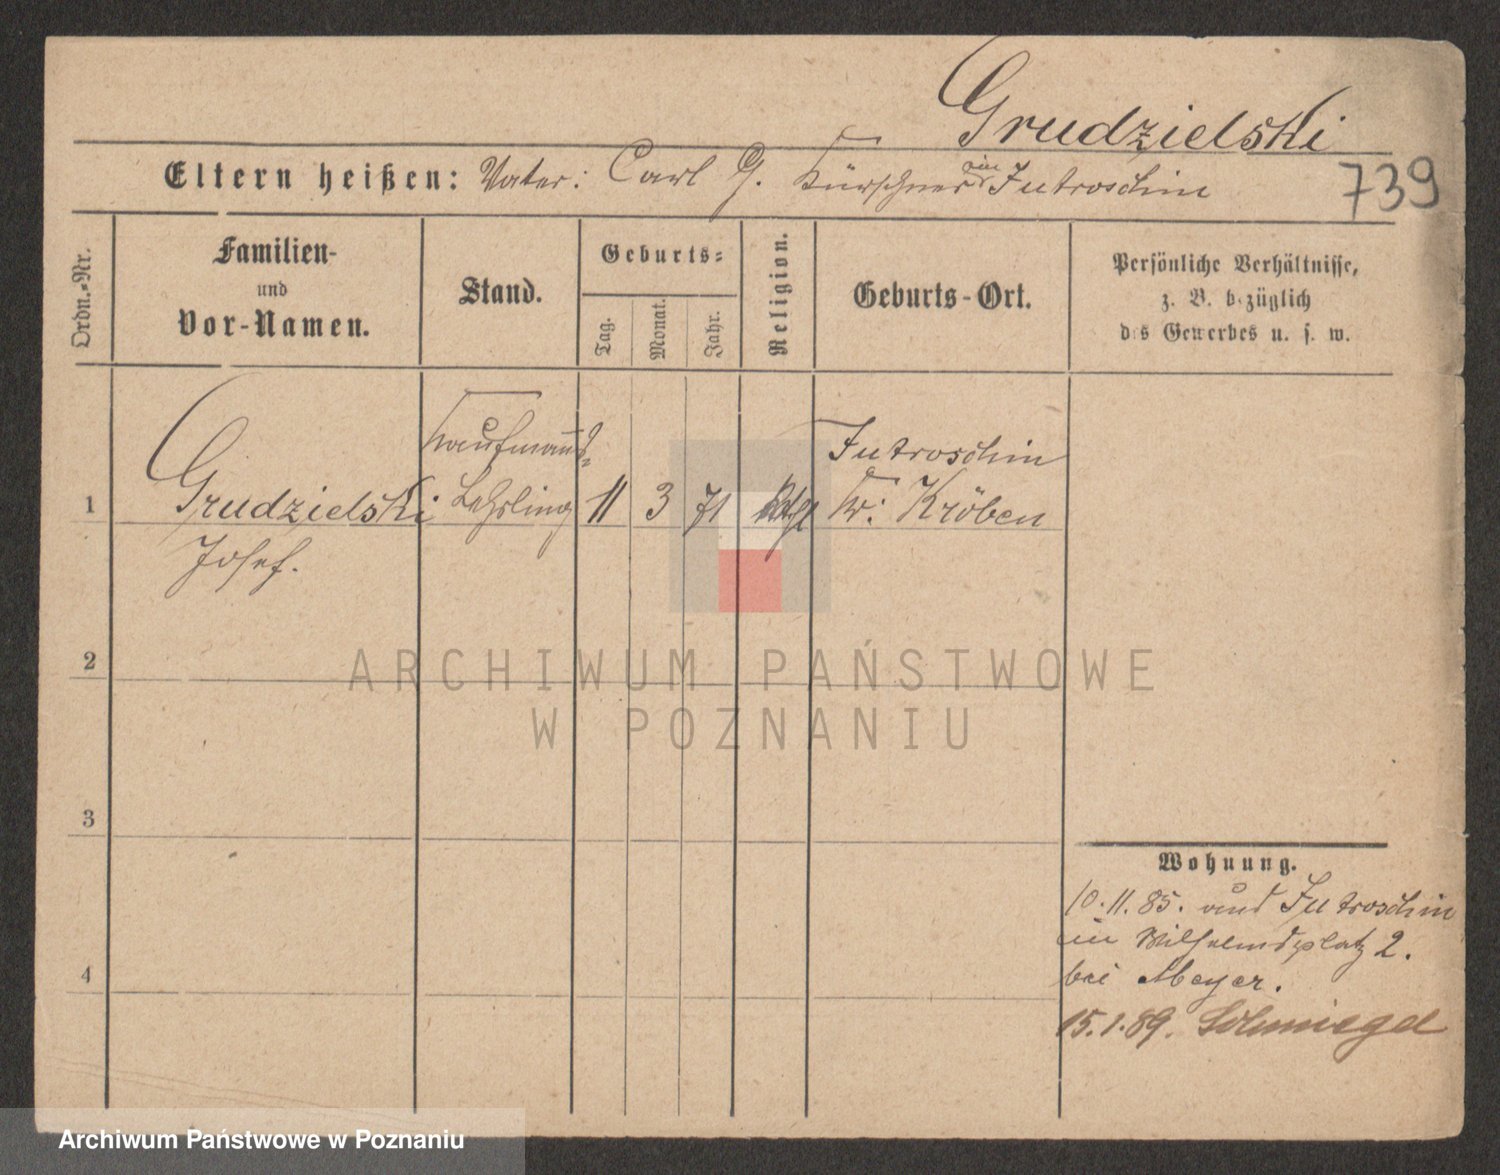 Grudzielski
Eltern heißen: Vater: Carl G. Kürschner in Jutroschin
739
Ordn.-Nr.
Familien-
und
Vor-Namen.
Stand.
Geburts-
Tag.
Monat.
Jahr.
Religion.
Geburts-Ort.
Persönliche Verhältnisse,
z. B. bezüglich
des Gewerbes u. s. w.
Kaufmanns-
Jutroschin
1 Grudzielski Lehrling 11 3 71 Kr: Kröben
Josef.
2
ARCHIWUM PAŃSTWOWE
W POZNANIU
3
Wohnung.
10.11.85. aus Jutroschin
in Wilhelmsplatz 2.
bei Meyer.
4
15.1.89. Schmiegel
Archiwum Państwowe w Poznaniu